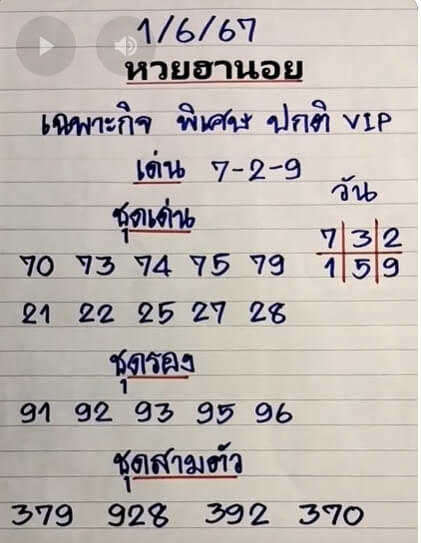 1/6/67
หวยฮานอย
เฉพาะกิจ พิเศษ ปกติ VIP
เด่น 7-2-9
วัน
7 3 2
1 5 9
ชุดเด่น
70 73 74 75 79
21 22 25 27 28
ชุดรอง
91 92 93 95 96
ชุดสามตัว
379 928 392 370